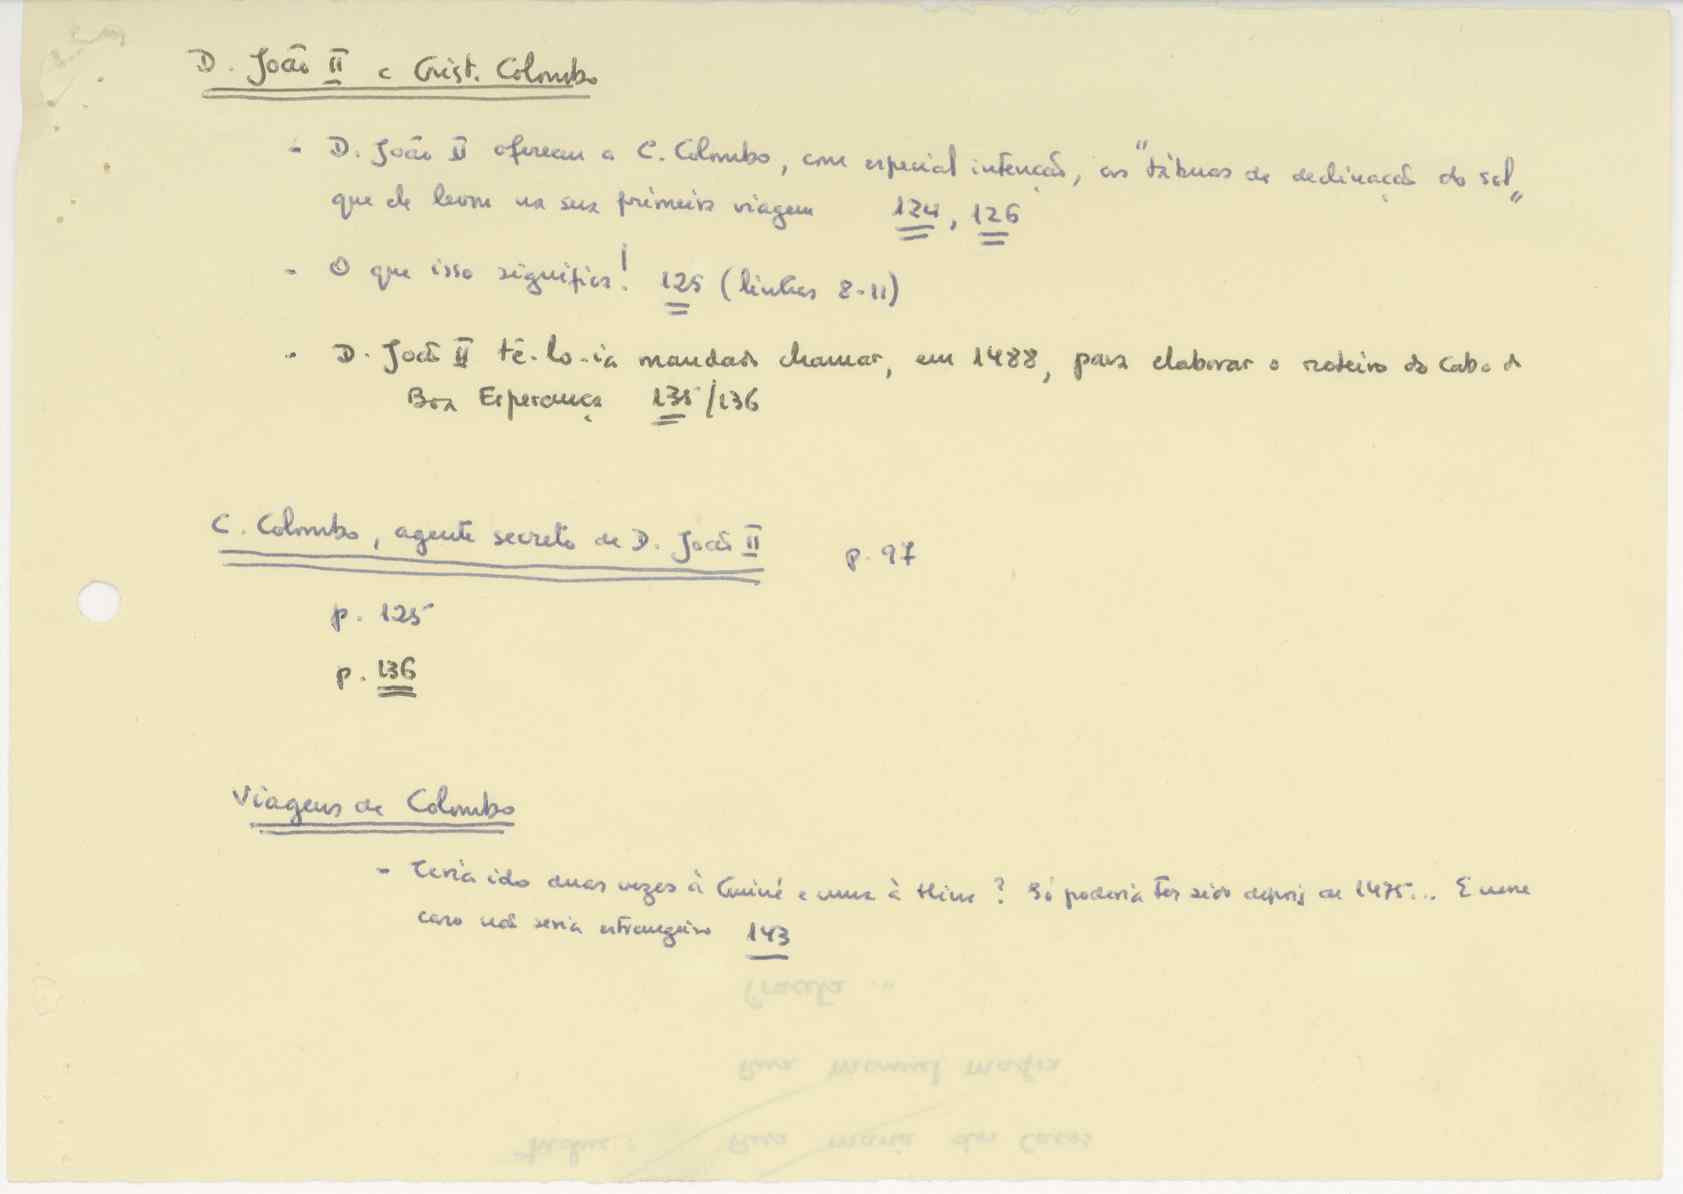 D. João II e Crist. Colombo
- D. João II ofereceu a C. Colombo, com especial intenção, as "tábuas de declinação do sol"
que ele levou na sua primeira viagem 124, 126
- O que isso significa! 125 (linhas 8-11)
- D. João II tê-lo-ia mandado chamar, em 1488, para elaborar o roteiro do Cabo da
Boa Esperança 135/136
C. Colombo, agente secreto de D. João II p. 97
p. 125
p. 136
Viagens de Colombo
- Teria ido duas vezes à Guiné e uma à Mina? Só poderia ter sido depois de 1475... E nesse
caso não seria estrangeiro 143